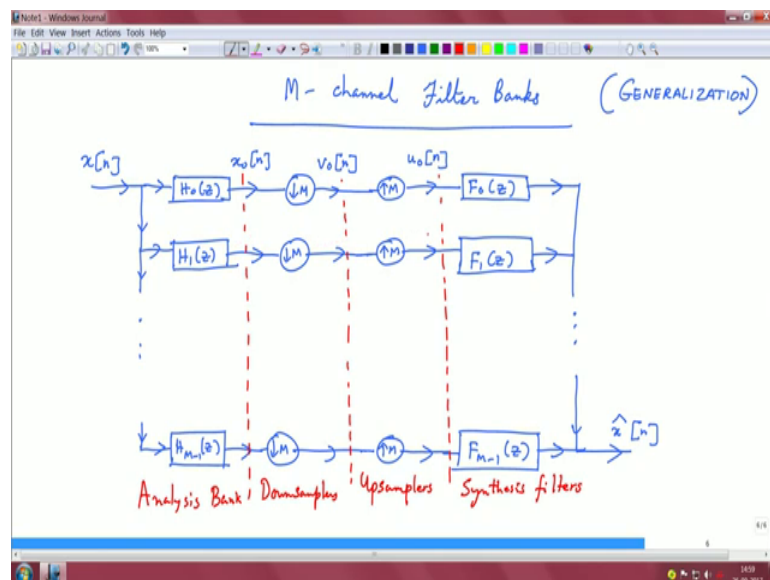 Note1 - Windows Journal
File Edit View Insert Actions Tools Help
100%
M - channel Filter Banks (GENERALIZATION)
x[n] x₀[n] v₀[n] u₀[n]
H₀(z) ↓M ↑M F₀(z)
H₁(z) ↓M ↑M F₁(z)
x̂[n]
H_{M-1}(z) ↓M ↑M F_{M-1}(z)
Analysis Bank Downsamplers Upsamplers Synthesis filters
6/6
6
14:59